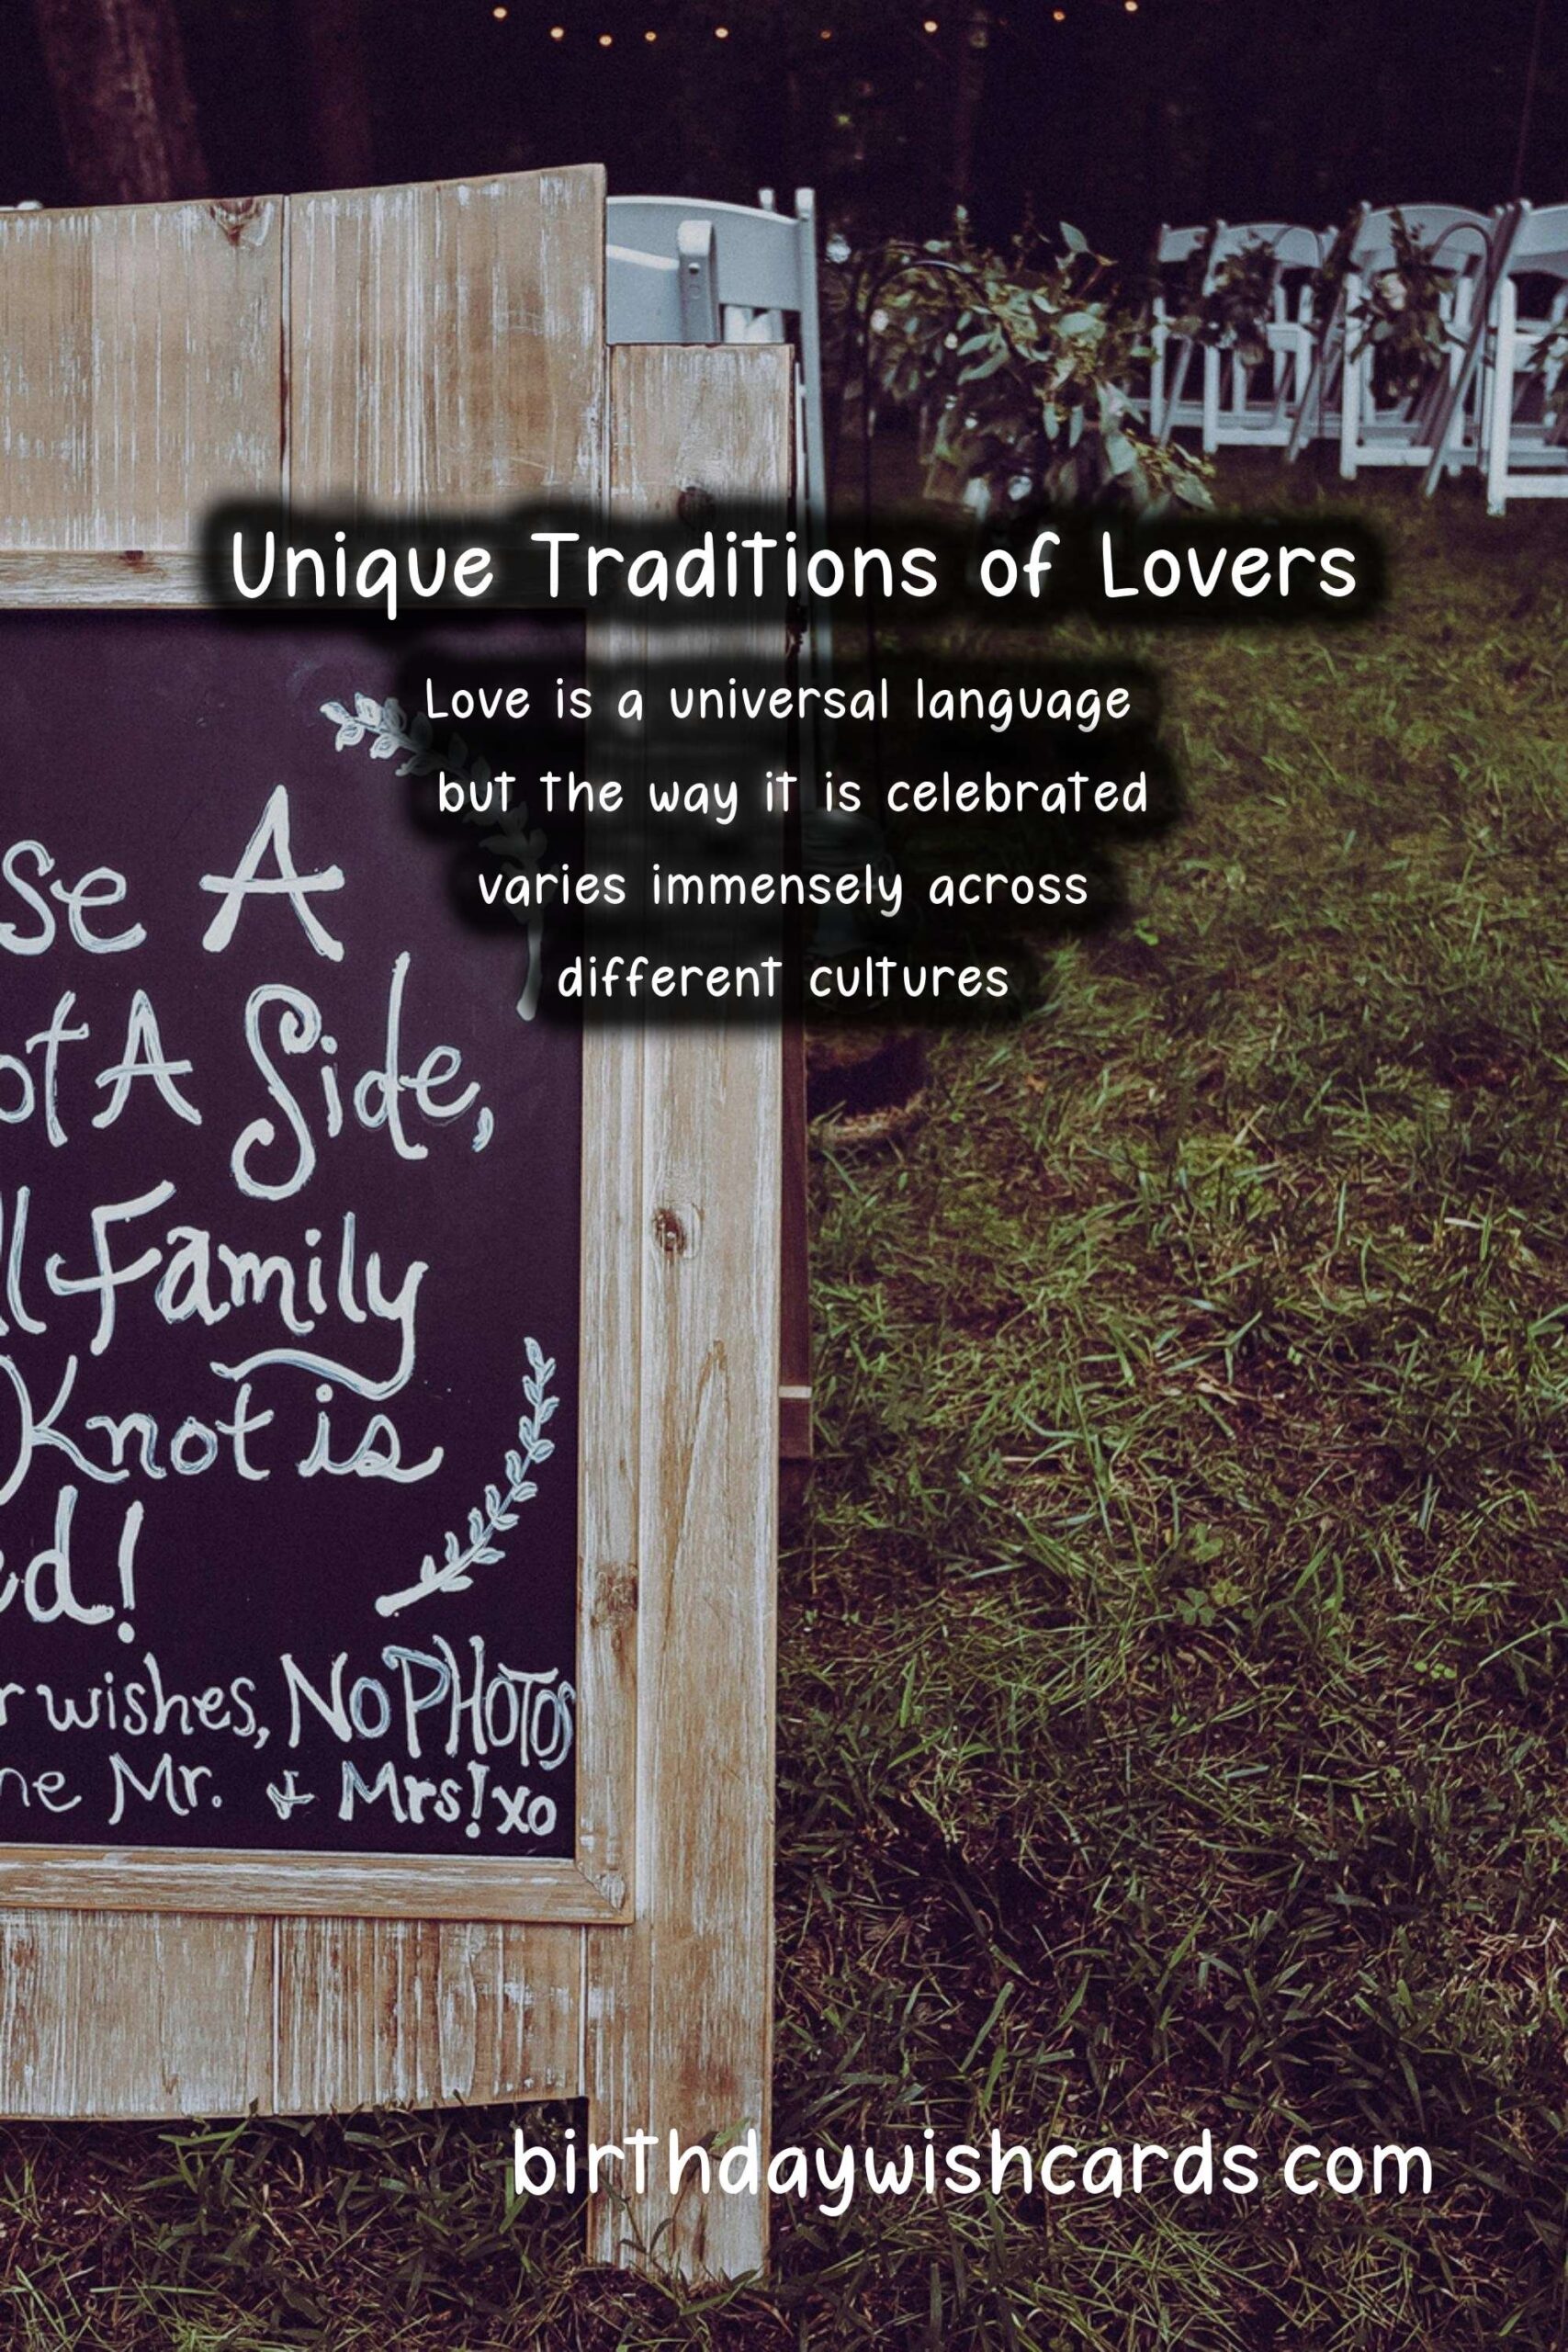 Unique Traditions of Lovers
Love is a universal language
but the way it is celebrated
varies immensely across
different cultures
A
A Side,
Family
Knot is
wishes, NO PHOTOS
Mr. & Mrs! xo
birthdaywishcards com